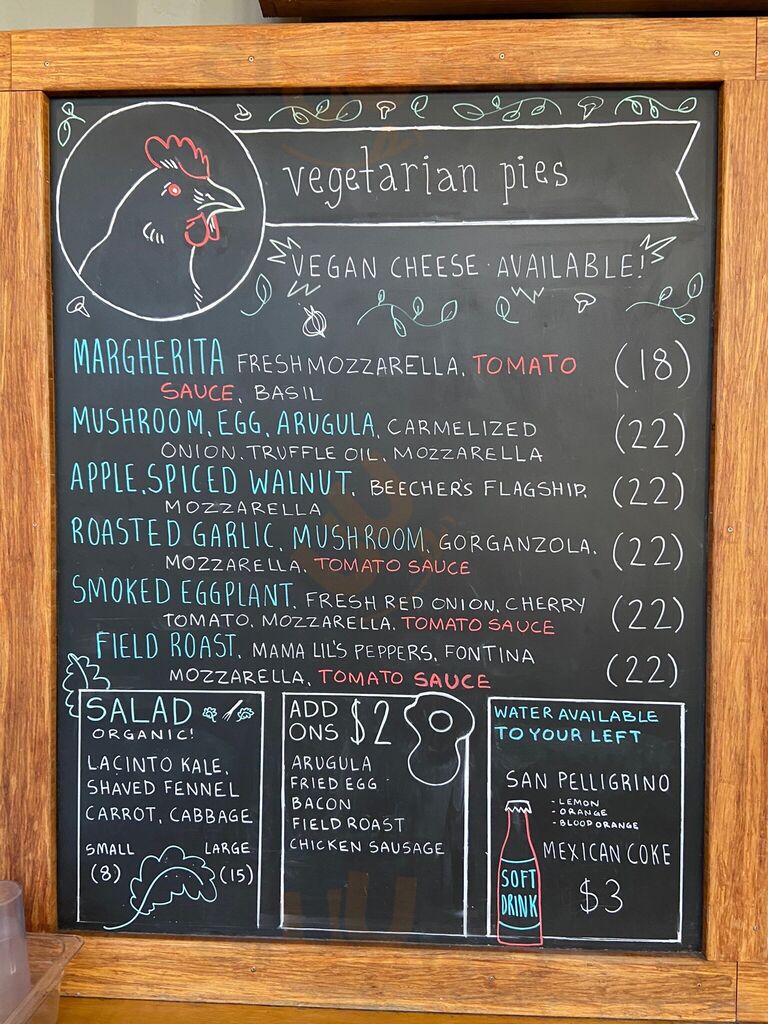 vegetarian pies
VEGAN CHEESE · AVAILABLE!
MARGHERITA FRESH MOZZARELLA, TOMATO (18)
SAUCE, BASIL
MUSHROOM, EGG, ARUGULA, CARMELIZED (22)
ONION, TRUFFLE OIL, MOZZARELLA
APPLE, SPICED WALNUT, BEECHER'S FLAGSHIP, (22)
MOZZARELLA
ROASTED GARLIC, MUSHROOM, GORGANZOLA, (22)
MOZZARELLA, TOMATO SAUCE
SMOKED EGGPLANT, FRESH RED ONION, CHERRY (22)
TOMATO, MOZZARELLA, TOMATO SAUCE
FIELD ROAST, MAMA LIL'S PEPPERS, FONTINA (22)
MOZZARELLA, TOMATO SAUCE
SALAD
ORGANIC!
LACINTO KALE,
SHAVED FENNEL
CARROT, CABBAGE
SMALL LARGE
(8) (15)
ADD
ONS $2
ARUGULA
FRIED EGG
BACON
FIELD ROAST
CHICKEN SAUSAGE
WATER AVAILABLE
TO YOUR LEFT
SAN PELLIGRINO
- LEMON
- ORANGE
- BLOOD ORANGE
MEXICAN COKE
$3
SOFT
DRINK